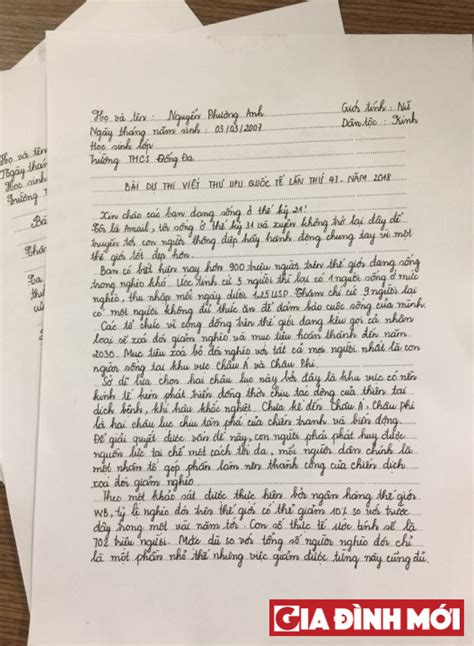 Họ và tên : Nguyễn Phương Anh Giới tính : Nữ
Ngày tháng năm sinh : 03/03/2007 Dân tộc : Kinh
Học sinh lớp
Trường THCS Đống Đa
BÀI DỰ THI VIẾT THƯ UPU QUỐC TẾ LẦN THỨ 47. NĂM 2018
Xin chào các bạn đang sống ở thế kỷ 21!
Tôi là Amail, tôi sống ở thế kỷ 31 và xuyên không trở lại đây để
truyền tới con người thông điệp hãy hành động chung tay vì một
thế giới tốt đẹp hơn.
Bạn có biết hiện nay hơn 900 triệu người trên thế giới đang sống
trong nghèo khó. Ước tính cứ 5 người thì lại có 1 người sống ở mức
nghèo, thu nhập mỗi ngày dưới 1,25 USD. Thậm chí cứ 9 người lại
có một người không đủ thức ăn để đảm bảo cuộc sống của mình.
Các tổ chức vì cộng đồng trên thế giới đang kêu gọi cả nhân
loại sẽ xoá đói giảm nghèo và mục tiêu hoàn thành đến năm
2030. Mục tiêu xoá bỏ đói nghèo với tất cả mọi người nhất là con
người sống tại khu vực Châu Á và Châu Phi.
Sở dĩ lựa chọn hai châu lục này bởi đây là khu vực có nền
kinh tế kém phát triển đồng thời chịu tác động của thiên tai
dịch bệnh, khí hậu khắc nghiệt. Chưa kể đến Châu Á, Châu phi
là hai châu lục chịu tàn phá của chiến tranh và biến động.
Để giải quyết được vấn đề này, con người phải phát huy được
nguồn lực tại chỗ một cách tối đa, mỗi người dân chính là
một nhân tố góp phần làm nên thành công của chiến dịch
xoá đói giảm nghèo.
Theo một khảo sát được thực hiện bởi ngân hàng thế giới
WB, tỷ lệ nghèo đói trên thế giới có thể giảm 10% so với trước
đây trong một vài năm tới. Con số thực tế ước tính sẽ là
702 triệu người. Mức dù so với tổng số người nghèo đói chỉ
là một phần nhỏ thế nhưng việc giảm được từng này cũng đủ
GIA ĐÌNH MỚI